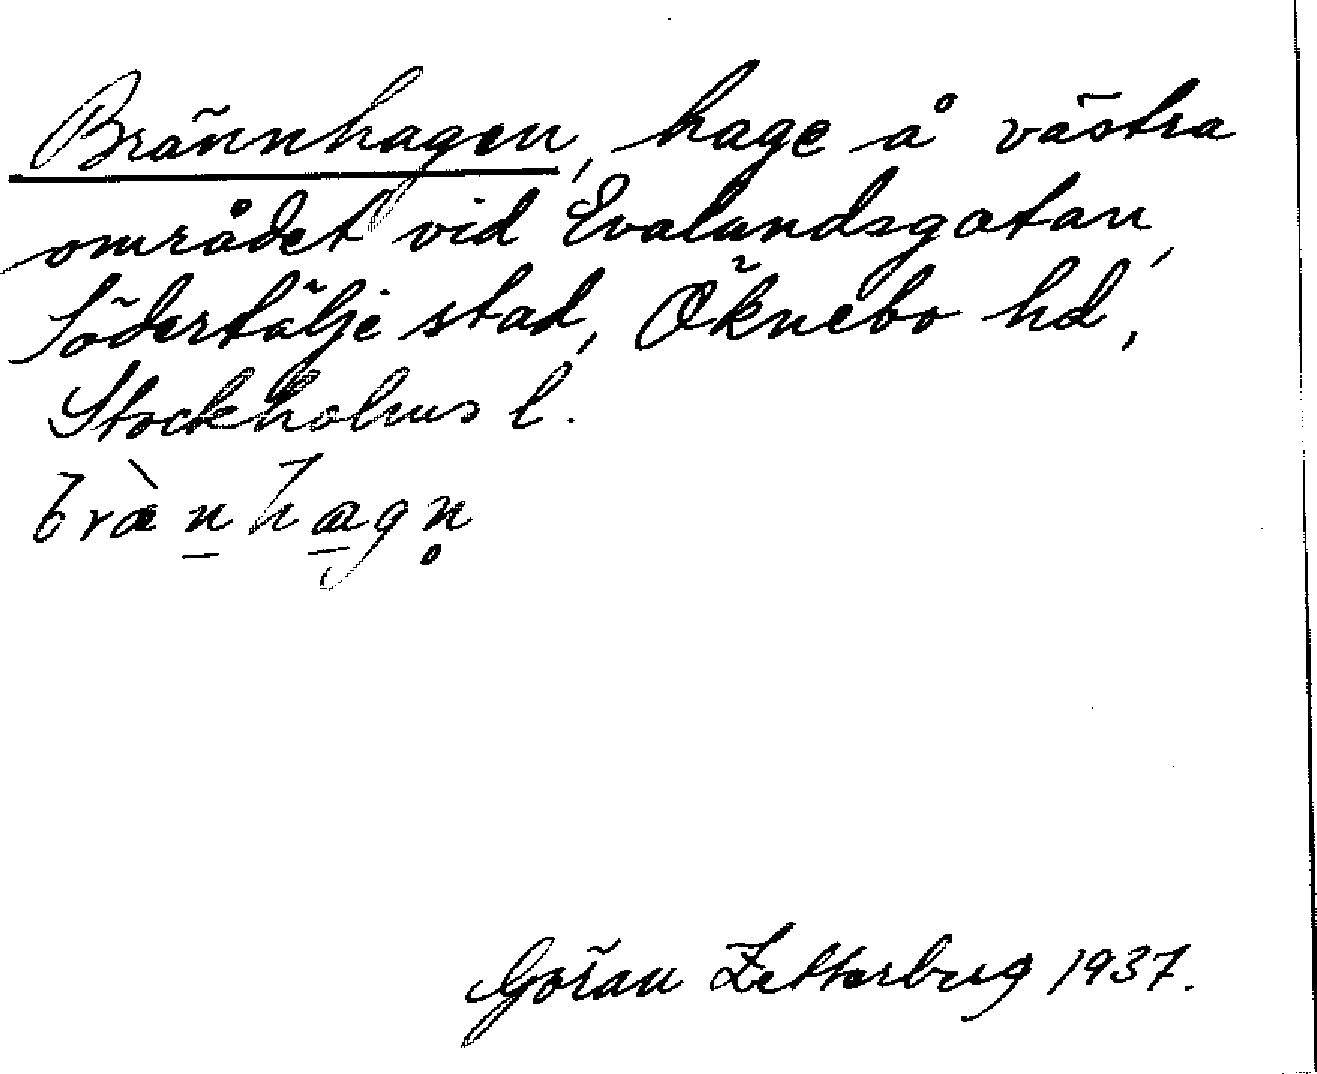 Brännhagen, hage å västra
området vid Evalundsgatan,
Södertälje stad, Öknebo hd,
Stockholms l.
bræ̀n̲ha̲gn̥
Göran Zetterberg 1937.